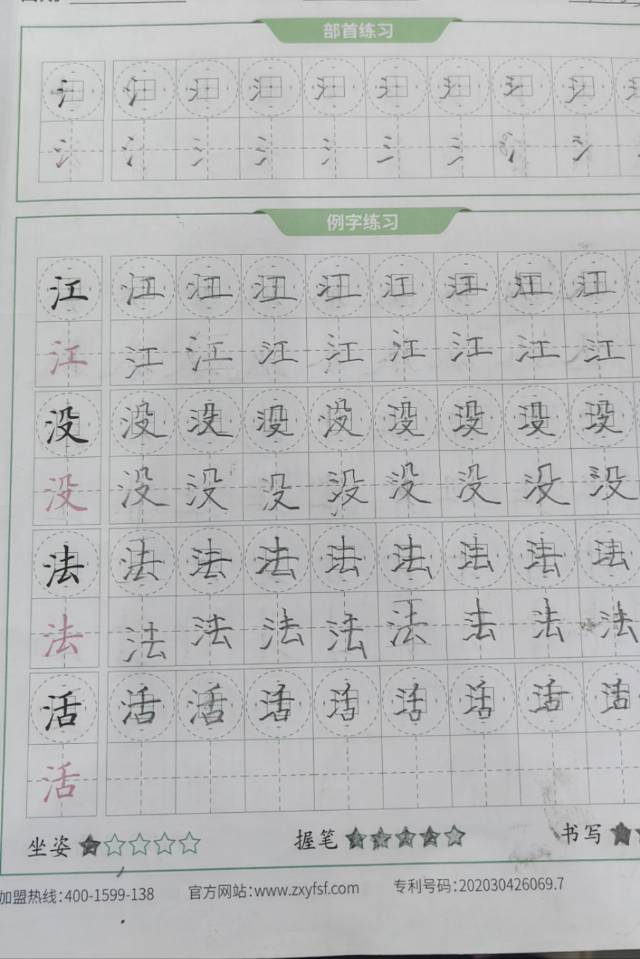 部首练习
氵 氵 氵 氵 氵 氵 氵 氵 氵
氵 氵 氵 氵 氵 氵 氵 氵 氵
例字练习
江 江 江 江 江 江 江 江 江
江 江 江 江 江 江 江 江 江
没 没 没 没 没 没 没 没 没
没 没 没 没 没 没 没 没 没
法 法 法 法 法 法 法 法 法
法 法 法 法 法 法 法 法 法
活 活 活 活 活 活 活 活 活
活
坐姿 握笔 书写
加盟热线:400-1599-138 官方网站:www.zxyfsf.com 专利号码:202030426069.7